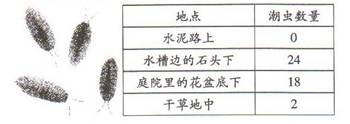 地点 潮虫数量
水泥路上 0
水槽边的石头下 24
庭院里的花盆底下 18
干草地中 2